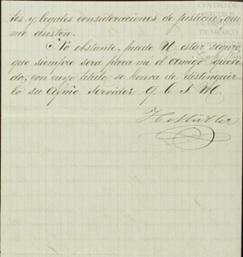 tas y legales consideraciones de justicia, que
me asisten.
No obstante, puede U. estar seguro,
que siempre será para mi el amigo queri-
do, con cuyo título se honra de distinguir
lo su Afmo. Servidor Q. B. S. M.
CENTRO DE
DE MÉXICO